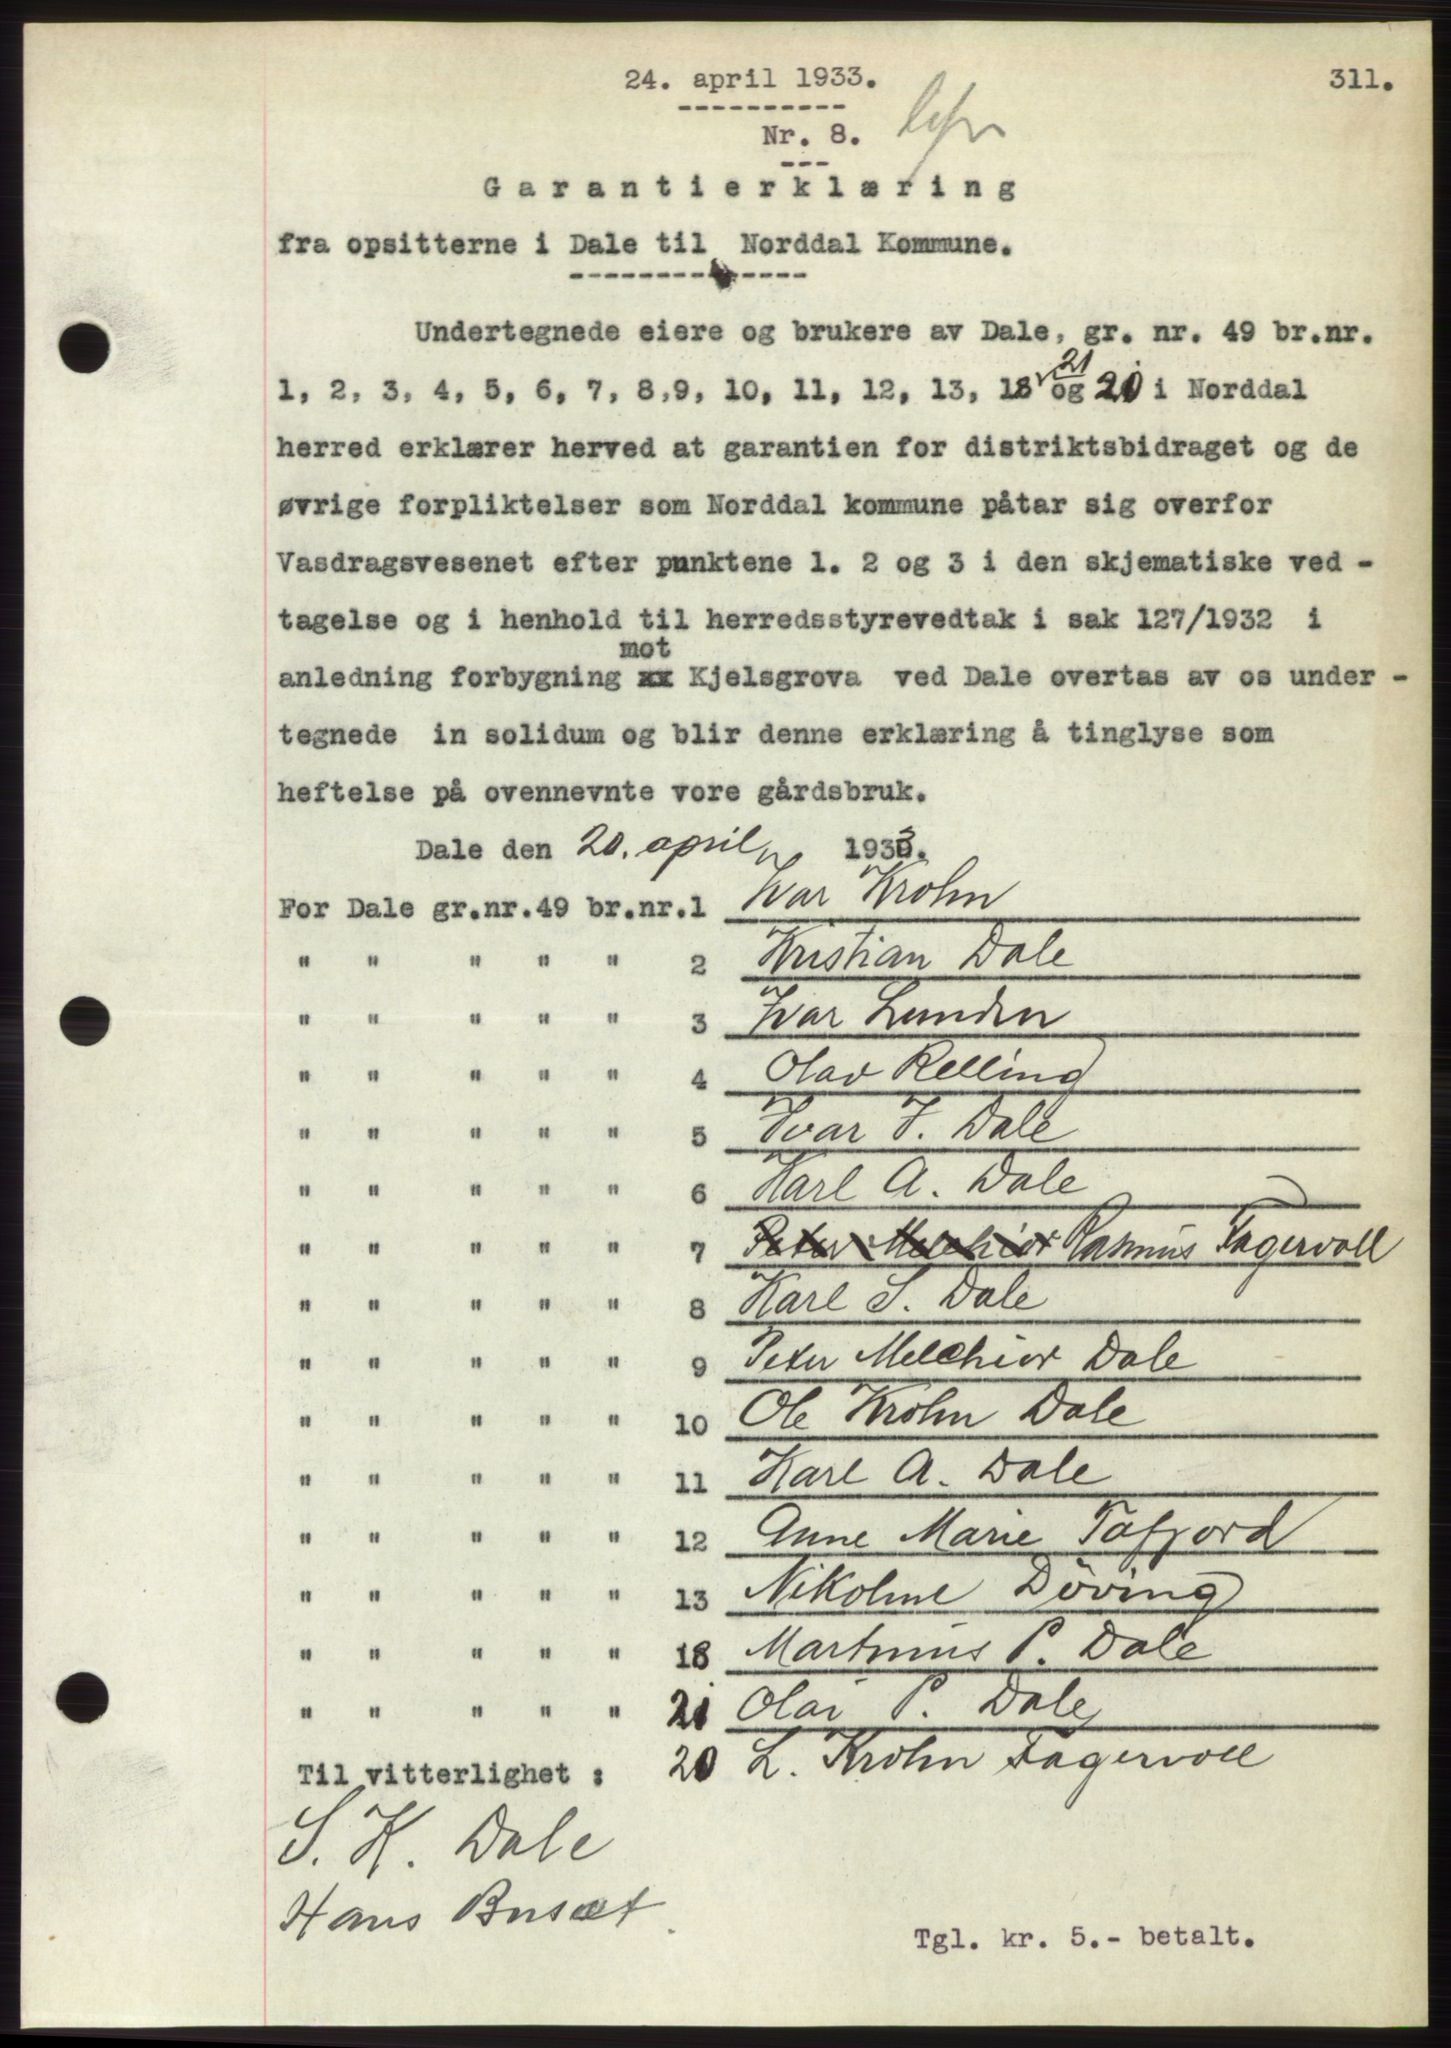 24. april 1933. 311.
Nr. 8.
Garantierklæring
fra opsitterne i Dale til Norddal Kommune.
Undertegnede eiere og brukere av Dale, gr. nr. 49 br.nr.
21
1, 2, 3, 4, 5, 6, 7, 8,9, 10, 11, 12, 13, 18 og 20 i Norddal
herred erklærer herved at garantien for distriktsbidraget og de
øvrige forpliktelser som Norddal kommune påtar sig overfor
Vasdragsvesenet efter punktene 1. 2 og 3 i den skjematiske ved -
tagelse og i henhold til herredsstyrevedtak i sak 127/1932 i
mot
anledning forbygning xx Kjelsgrova ved Dale overtas av os under -
tegnede in solidum og blir denne erklæring å tinglyse som
heftelse på ovennevnte vore gårdsbruk.
Dale den 20. april 1933.
For Dale gr.nr.49 br.nr.1 Ivar Krohn
" " " " " 2 Kristian Dale
" " " " " 3 Ivar Lunden
" " " " " 4 Olav Relling
" " " " " 5 Ivar I. Dale
" " " " " 6 Karl A. Dale
" " " " " 7 Peter Melchior Rasmus Fagervoll
" " " " " 8 Karl S. Dale
" " " " " 9 Peter Melchior Dale
" " " " " 10 Ole Krohn Dale
" " " " " 11 Karl A. Dale
" " " " " 12 Anne Marie Tafjord
" " " " " 13 Nikoline Döving
" " " " " 18 Martinus P. Dale
" " " " " 21 Olai P. Dale
Til vitterlighet : 20 L. Krohn Fagervoll
S. K. Dale
Hans Busæt
Tgl. kr. 5.- betalt.